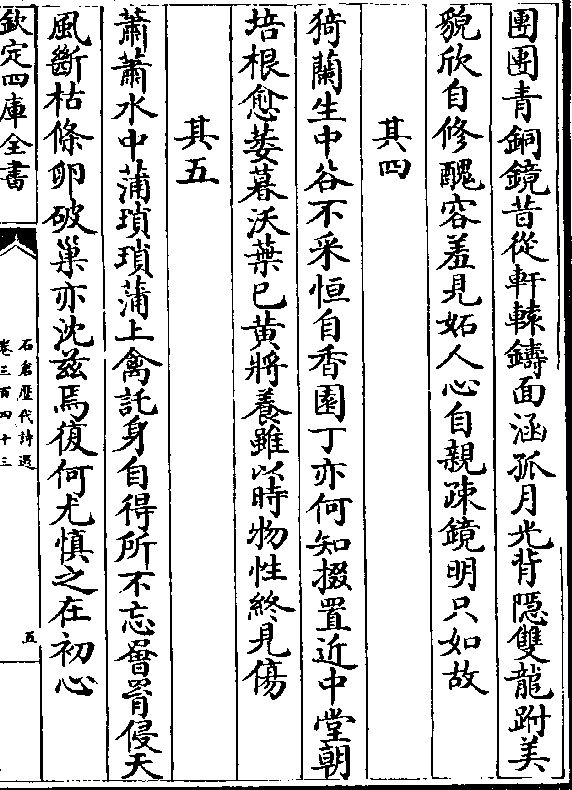 團團青銅鏡昔從軒轅鑄面涵孤月光背隱雙龍跗美
貌欣自修醜容羞見妬人心自親疎鏡明只如故
其四
猗蘭生中谷不采恒自香園丁亦何知掇置近中堂朝
培根愈萎暮沃葉已黄將養雖以時物性終見傷
其五
蕭蕭水中蒲瑣瑣蒲上禽託身自得所不忘罾罥侵天
風斷枯條卵破巢亦沈兹焉復何尤慎之在初心
欽定四庫全書
石倉歷代詩選
卷三百四十三
五